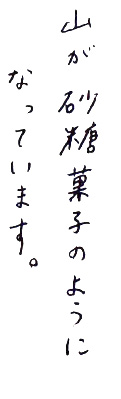 山が砂糖菓子のように
なっています。